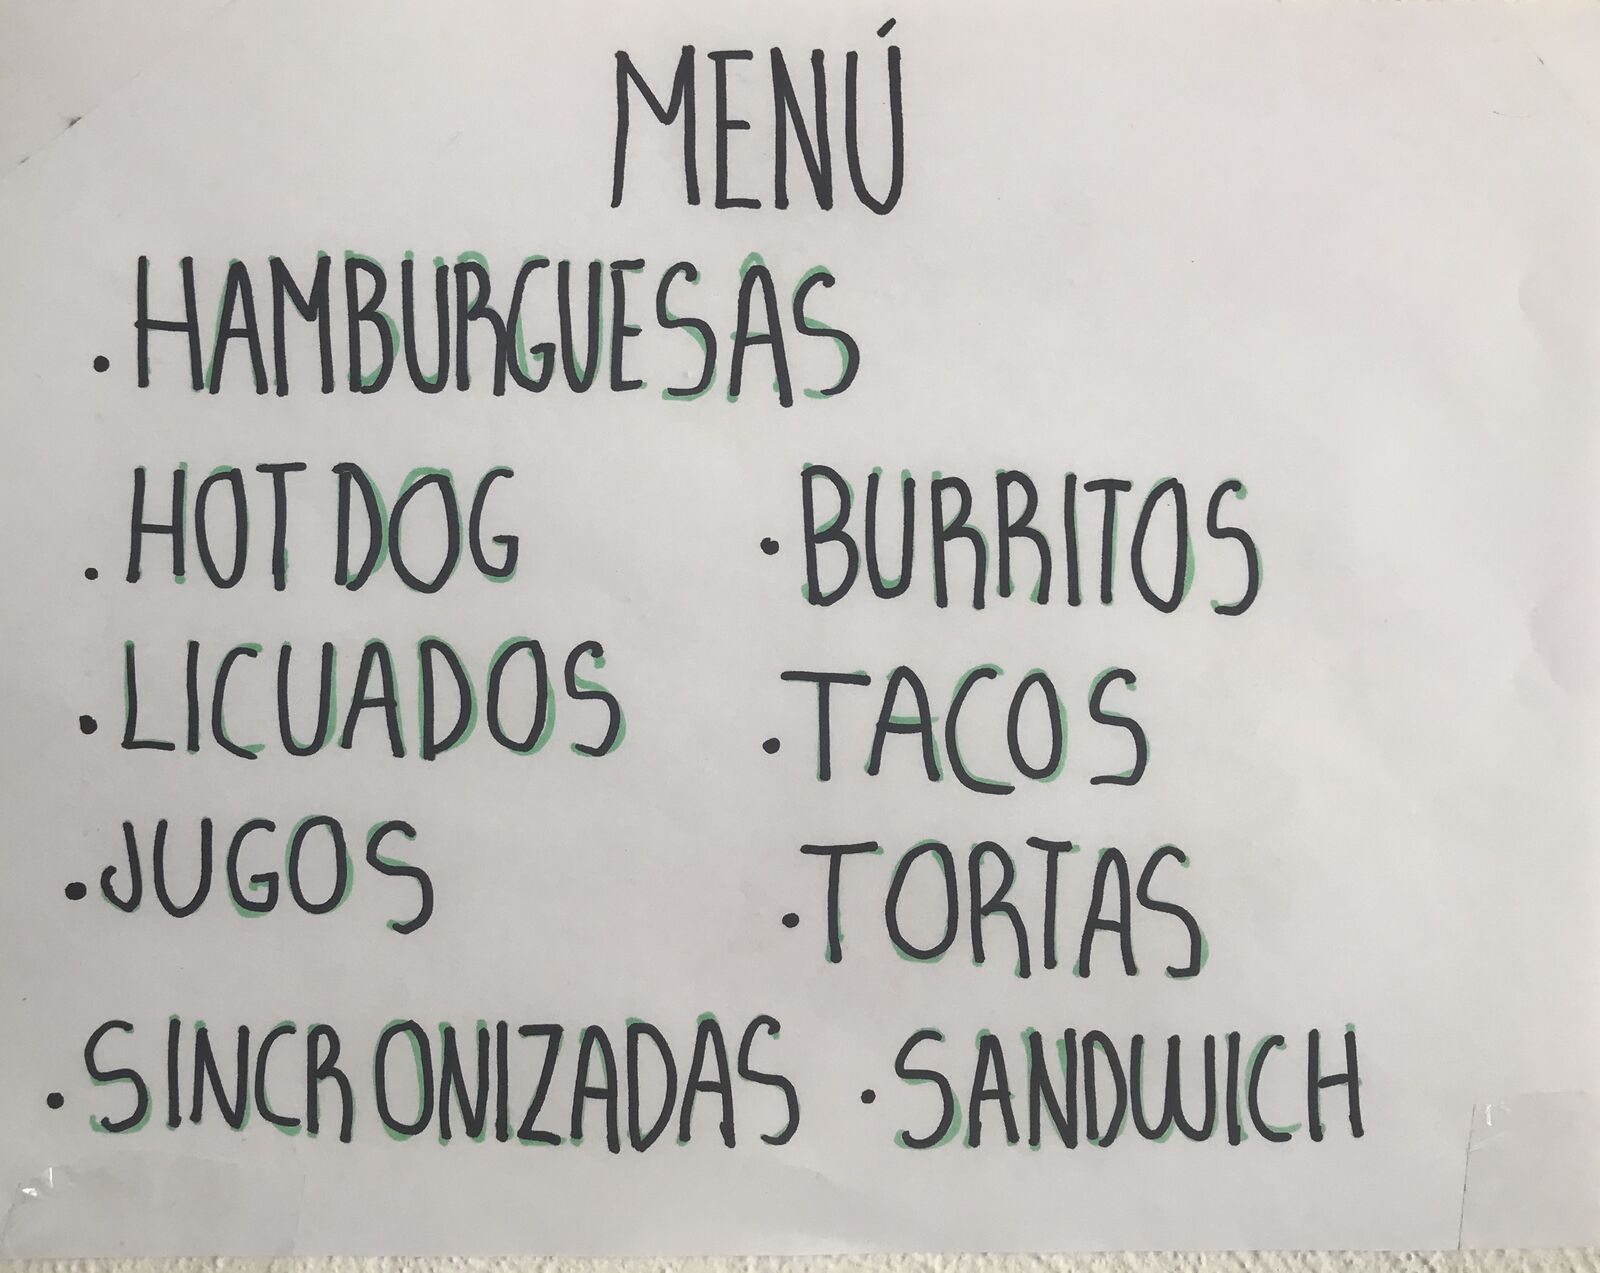 MENÚ
. HAMBURGUESAS
. HOT DOG
. LICUADOS
. JUGOS
. SINCRONIZADAS
. BURRITOS
. TACOS
. TORTAS
. SANDWICH